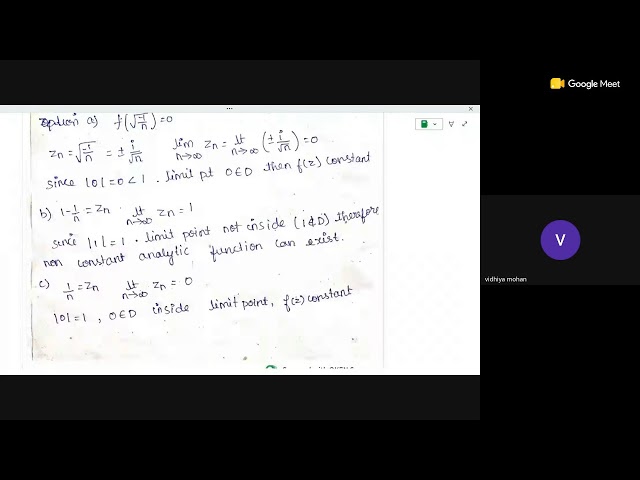 option a) f(√-1/n) = 0
Google Meet
Zn = √-1/n = ± i/√n   lim n→∞ Zn = lt n→∞ (± i/√n) = 0
since |0| = 0 < 1 . limit pt 0∈D then f(z) constant
b) 1 - 1/n = Zn   lt n→∞ Zn = 1
since |1| = 1 . limit point not inside (1∉D) therefore
non constant analytic function can exist.
c) 1/n = Zn   lt n→∞ Zn = 0
|0| = 1 , 0∈D inside limit point, f(z) constant
V
vidhiya mohan